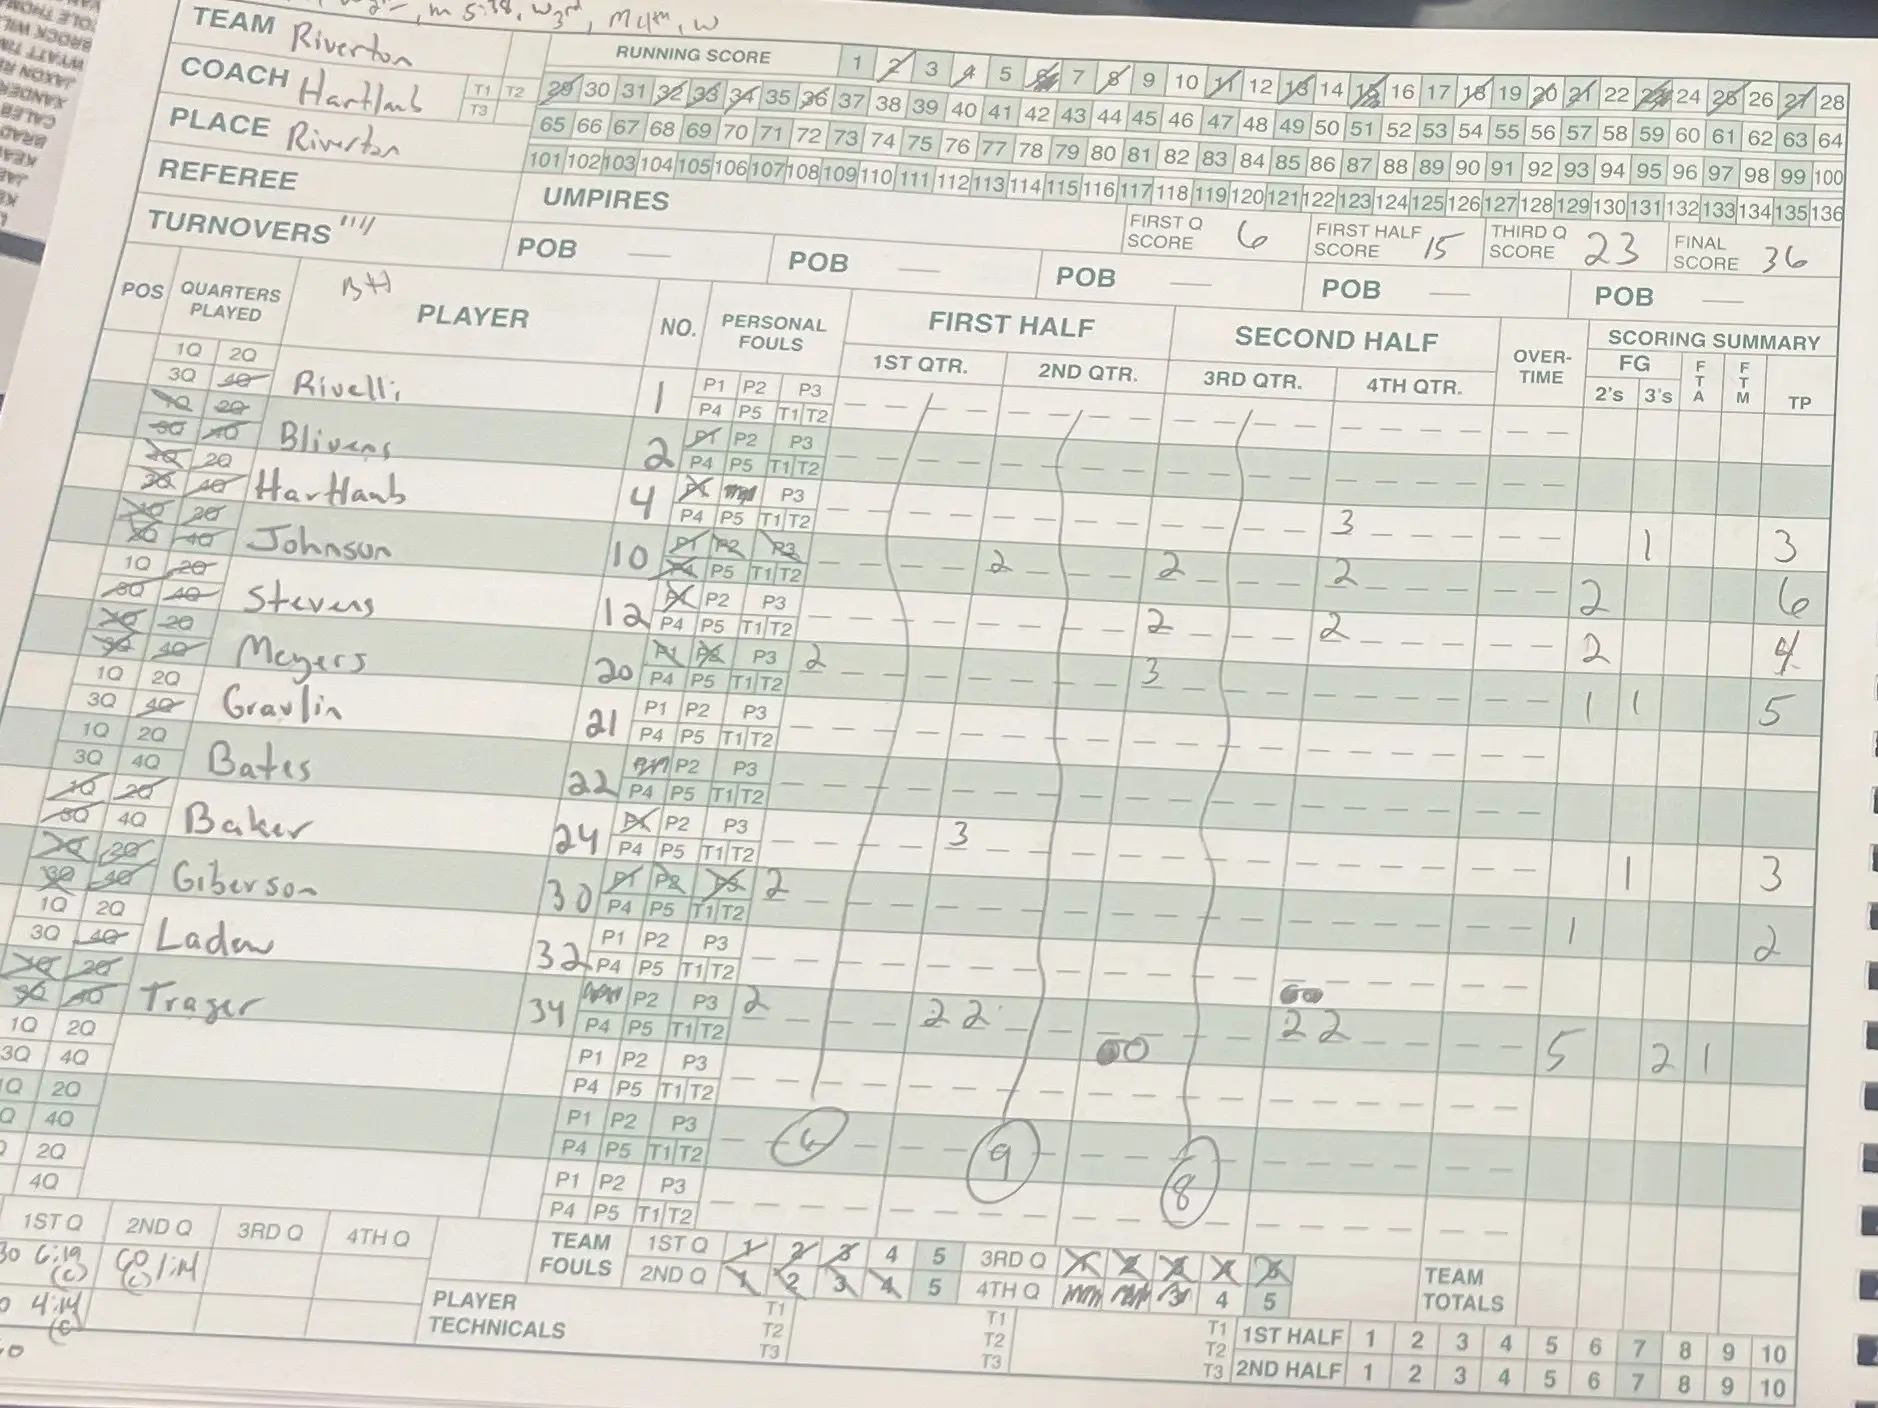 TEAM Riverton
COACH Hartlaub T1 T2 T3
PLACE Riverton
REFEREE
TURNOVERS
RUNNING SCORE 1 2 3 4 5 6 7 8 9 10 11 12 13 14 15 16 17 18 19 20 21 22 23 24 25 26 27 28
29 30 31 32 33 34 35 36 37 38 39 40 41 42 43 44 45 46 47 48 49 50 51 52 53 54 55 56 57 58 59 60 61 62 63 64
65 66 67 68 69 70 71 72 73 74 75 76 77 78 79 80 81 82 83 84 85 86 87 88 89 90 91 92 93 94 95 96 97 98 99 100
101 102 103 104 105 106 107 108 109 110 111 112 113 114 115 116 117 118 119 120 121 122 123 124 125 126 127 128 129 130 131 132 133 134 135 136
UMPIRES
FIRST Q SCORE 6 FIRST HALF SCORE 15 THIRD Q SCORE 23 FINAL SCORE 36
POB — POB — POB — POB — POB —
POS QUARTERS PLAYED BH PLAYER NO. PERSONAL FOULS FIRST HALF SECOND HALF OVER-TIME SCORING SUMMARY
1ST QTR. 2ND QTR. 3RD QTR. 4TH QTR. FG 2's 3's FTA FTM TP
1Q 2Q 3Q 4Q Rivelli 1 P1 P2 P3 P4 P5 T1 T2
1Q 2Q 3Q 4Q Blivens 2 P1 P2 P3 P4 P5 T1 T2
1Q 2Q 3Q 4Q Hartlaub 4 P1 P3 P4 P5 T1 T2 3 1 3
1Q 2Q 3Q 4Q Johnson 10 P1 P2 P3 P4 P5 T1 T2 2 2 2 2 6
1Q 2Q 3Q 4Q Stevens 12 P1 P2 P3 P4 P5 T1 T2 2 2 2 4
1Q 2Q 3Q 4Q Meyers 20 P1 P2 P3 P4 P5 T1 T2 2 3 1 1 5
1Q 2Q 3Q 4Q Gravlin 21 P1 P2 P3 P4 P5 T1 T2
1Q 2Q 3Q 4Q Bates 22 P2 P3 P4 P5 T1 T2
1Q 2Q 3Q 4Q Baker 24 P1 P2 P3 P4 P5 T1 T2 3 1 3
1Q 2Q 3Q 4Q Giberson 30 P1 P2 P3 P4 P5 T1 T2 2 1 2
1Q 2Q 3Q 4Q Laden 32 P1 P2 P3 P4 P5 T1 T2
1Q 2Q 3Q 4Q Trager 34 P2 P3 P4 P5 T1 T2 2 2 2 2 2 5 2 1
1Q 2Q 3Q 4Q P1 P2 P3 P4 P5 T1 T2
1Q 2Q 4Q P1 P2 P3 P4 P5 T1 T2 6 9 8
2Q 4Q P1 P2 P3 P4 P5 T1 T2
1ST Q 2ND Q 3RD Q 4TH Q
30 6:19 (c) 60 1:14 (c)
4:14 (c)
TEAM FOULS 1ST Q 1 2 3 4 5 3RD Q 1 2 3 4 5
2ND Q 1 2 3 4 5 4TH Q 3 4 5
TEAM TOTALS
PLAYER TECHNICALS T1 T2 T3 T1 T2 T3 T1 T2 T3
1ST HALF 1 2 3 4 5 6 7 8 9 10
2ND HALF 1 2 3 4 5 6 7 8 9 10